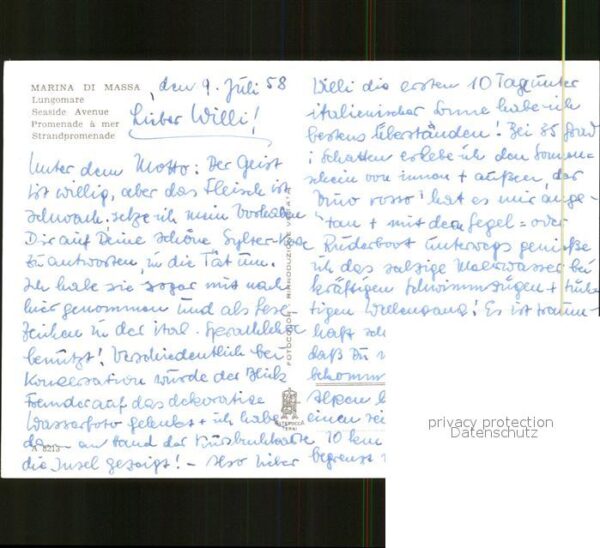 MARINA DI MASSA
Lungomare
Seaside Avenue
Promenade à mer
Strandpromenade
den 9. Juli 58
Lieber Willi!
Unter dem Motto: Der Geist
ist willig, aber das Fleisch ist
schwach. setze ich mein Vorhaben
Dir auf Deine schöne Sylter-
zu antworten, in die Tat um.
Ich habe sie sogar mit nach
hier genommen und als Lese
zeichen in der ital. Sprachlehre
benützt! Verschiedentlich bei
Konversation würde der Blick
Fremder auf das dekorative
Wasserfoto gelenkt + ich habe
da - an Hand der 10 km
die Insel gezeigt! - Also lieber
Willi die ersten 10 Tage unter
italienischer Sonne habe ich
bestens überstanden! Bei 35 Grad
i. Schatten erlebe ich den Sonnen=
schein von innen + außen, der
"Vino rosso" hat es mir ange=
tan + mit dem Segel= oder
Ruderboot unterwegs genieße
ich das salzige Meerwasser bei
kräftigen Schwimmzügen +
tigen Wellengang! Es ist traum=
haft
daß Du
bekomm
Alpen
einen
begrenzt
FOTOCOLOR - RIPRODUZIONE VIETATA
A 8213
privacy protection
Datenschutz